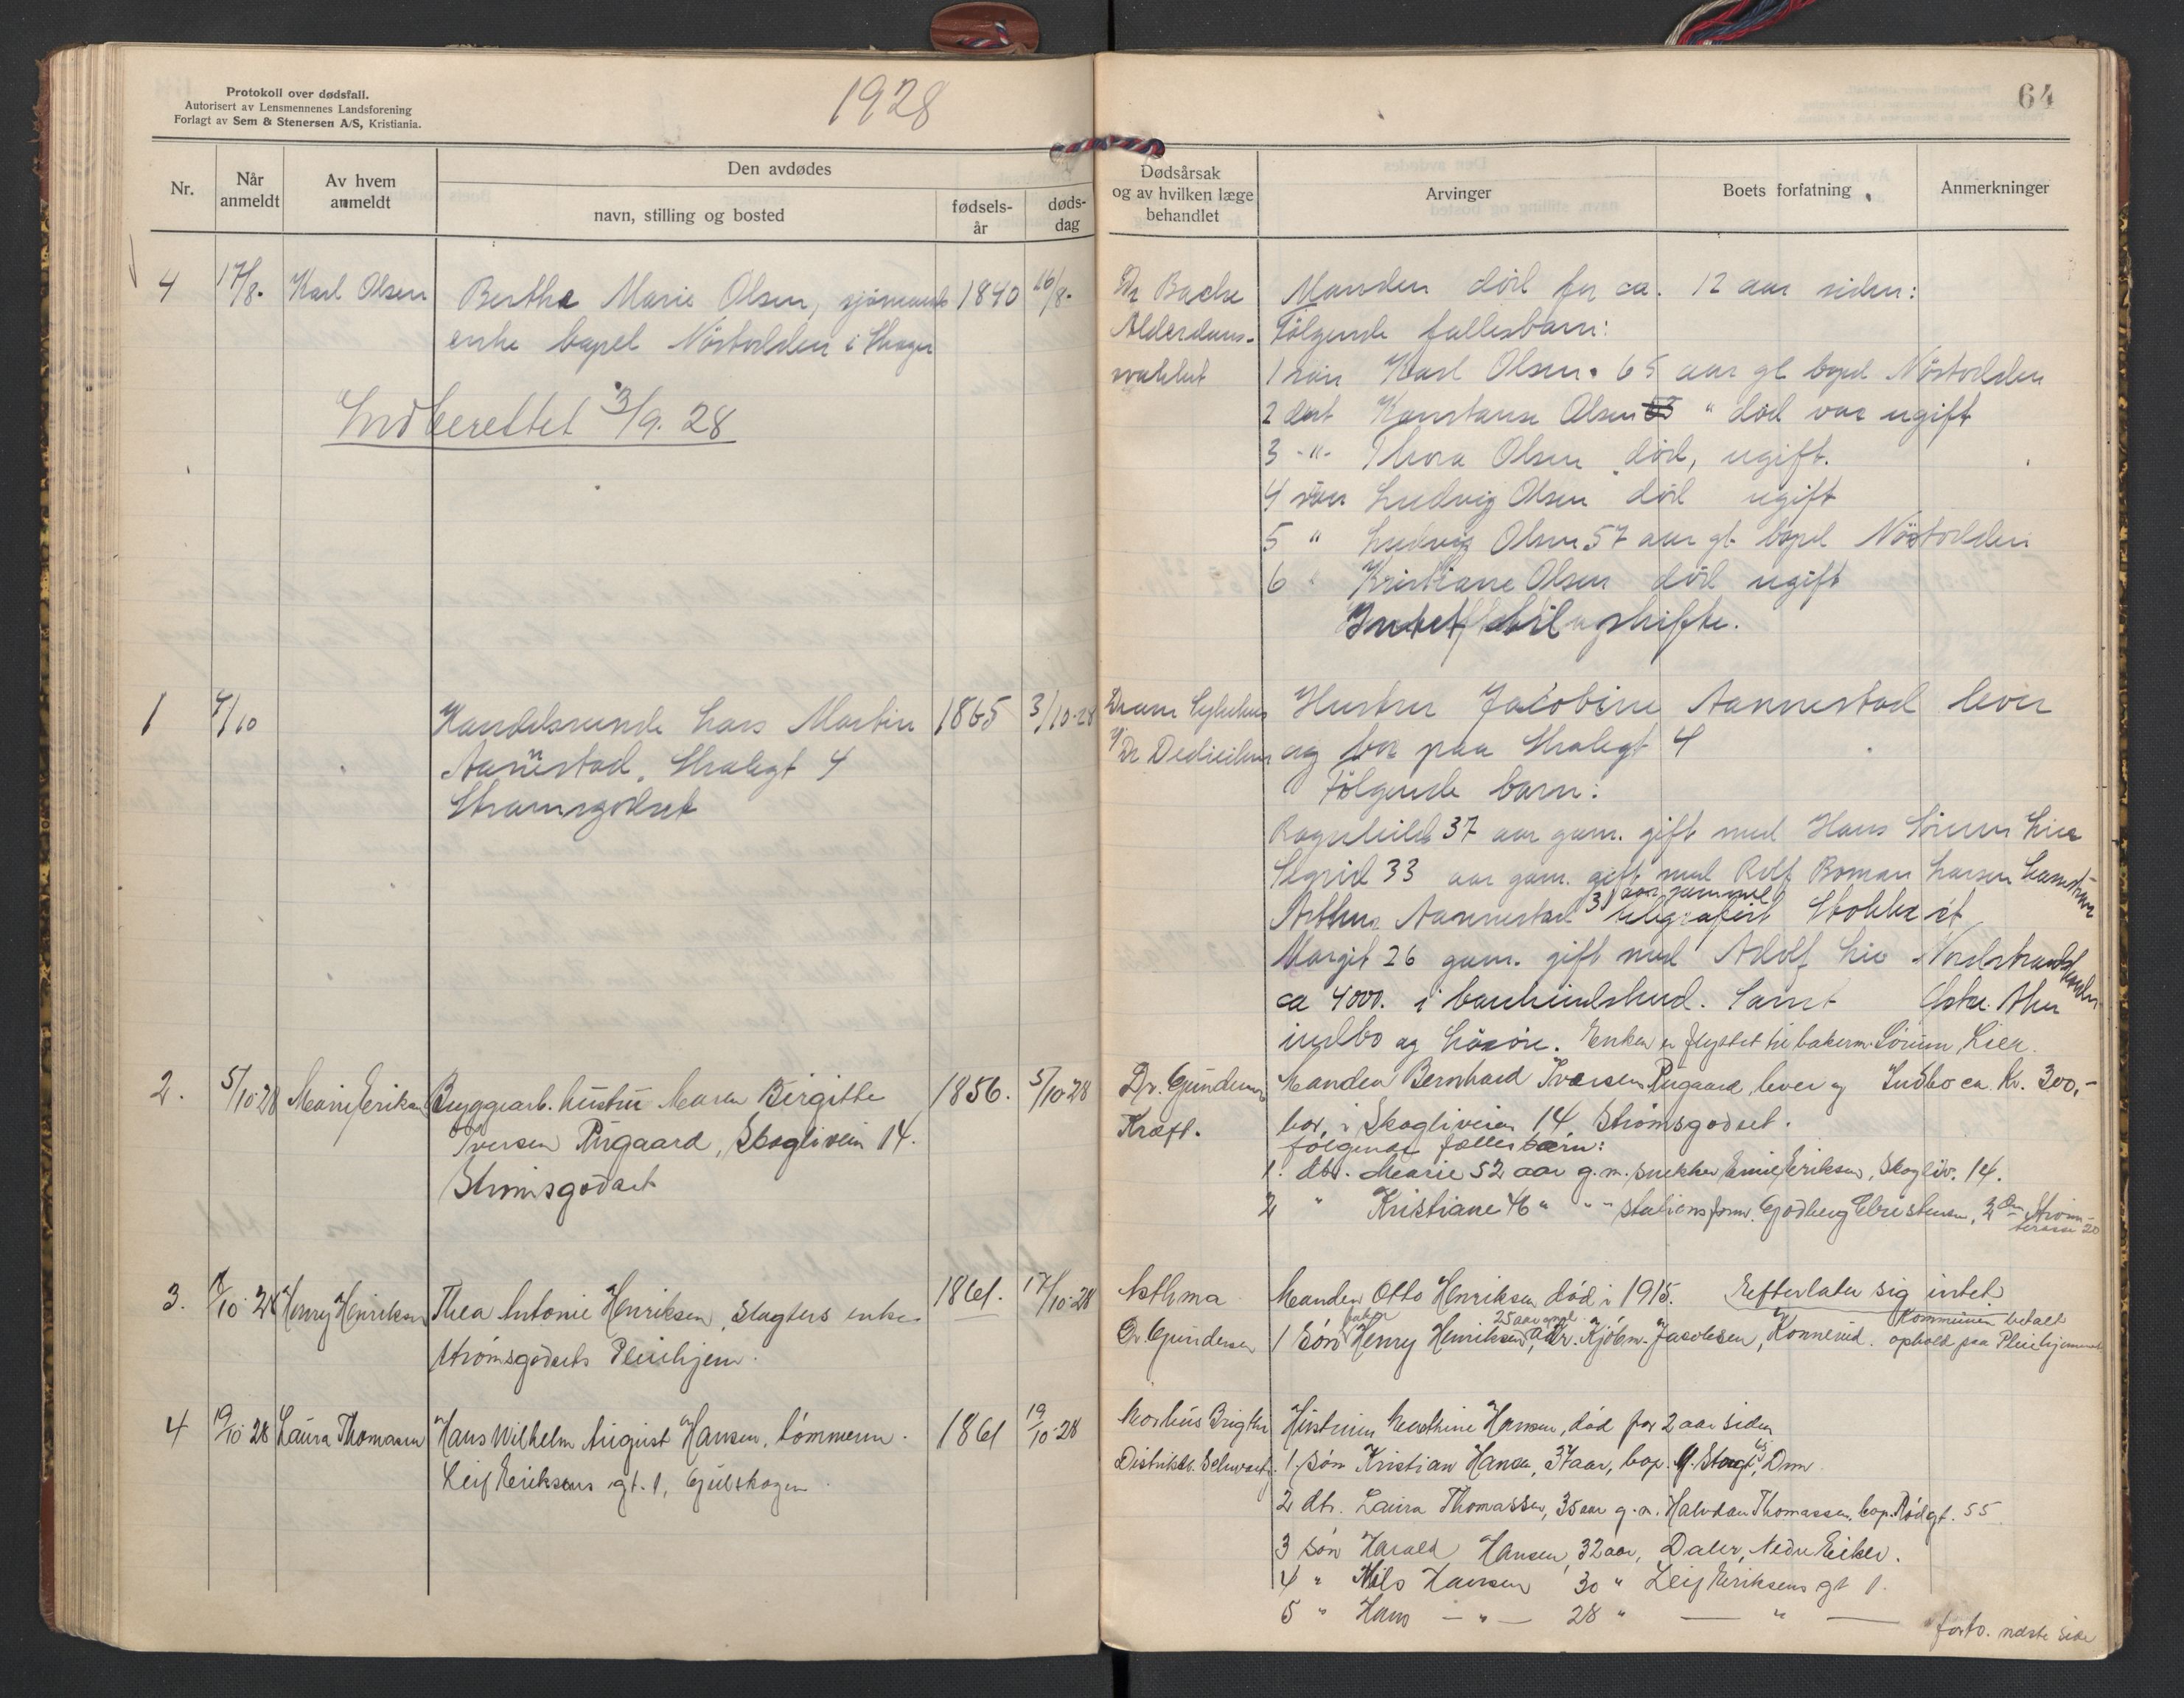 Protokoll over dødsfall.
Autorisert av Lensmennenes Landsforening
Forlagt av Sem & Stenersen A/S, Kristiania.
1928
64
Nr.
Når anmeldt
Av hvem anmeldt
Den avdødes
navn, stilling og bosted
fødsels-
år
døds-
dag
Dødsårsak
og av hvilken læge
behandlet
Arvinger
Boets forfatning
Anmerkninger
4 17/8. Karl Olsen Berthe Marie Olsen, sjömands 1840 16/8.
enke bopel Nöstodden i Skoger
Indberettet 3/9. 28
Dr Bache
Alderdoms-
svakhet
Manden död for ca. 12 aar siden:
Følgende fellesbarn:
1 sön Karl Olsen. 65 aar gl bopel Nöstodden
2 dat Konstanse Olsen " död var ugift
3 -"- Thora Olsen död, ugift.
4 sön Ludvig Olsen död ugift
5 " Ludvig Olsen 57 aar gl. bopel Nöstodden
6 " Kristiane Olsen död ugift
Intet til skifte.
1 4/10 Handelsmand Lars Martin 1865 3/10-28
Aannestad,
4
Strømsgodset
Dram Sykehus
v/ Dr Dedichen
Hustru Jacobine Aannestad lever
og bor paa 4
Følgende barn:
Ragnhild 37 aar gam. gift med Hans Sörum Lier
Sigrid 33 aar gam. gift med Rolf Roman Larsen
Arthur Aannestad 31 aar gammel telegrafist
Margit 26 gam. gift med Adolf Lie Nordstrand
ca 4000. i bankindskud. Samt
indbo og lösöre. Enken er flyttet til bakerm. Sörum, Lier.
2. 5/10-28 Marie Eriksen Bryggearb. hustru Maren Birgitte 1856. 5/10-28
Iversen Pirgaard, Skogliveien 14.
Strömsgodset
Dr. Gundersen
Kræft.
Manden Bernhard Iversen Pirgaard lever og Indbo ca. Kr. 300,-
bor i Skogliveien 14 Strömsgodset.
følgende fællesbarn:
1. dtr. Marie 52 aar g.m. snekker Emil Eriksen, Skogliv. 14.
2 " Kristiane 46 " " - stationsform. Godberg Christensen,
20
3. /10-28 Henry Henriksen Thea Antonie Henriksen, slagters enke 1861. 17/10-28
Strömsgodsets Pleiehjem.
Asthma
Dr. Gundersen
Manden Otto Henriksen död i 1915. Efterlater sig intet
1 Sön Henry Henriksen, 25 aar adr. Kjöbm. Jacobsen, Konnerud. Kommunen betalt
ophold paa Pleiehjemmet
4 19/10-28 Laura Thomassen Hans Wilhelm August Hansen, tömmerm. 1861 19/10-28
Leif Eriksens gt. 1, Gulskogen
Morbus Brigthi
Distriktsl. Schwartz.
Hustruen Mathine Hansen, död for 2 aar siden
1. Sön Kristian Hansen, 37 aar, bop. Storgt, Drm.
2 dtr. Laura Thomassen, 35 aar g.m. Halvdan Thomassen, bop. Rödgt. 55
3 sön Harald Hansen, 32 aar, Daler, Nedre Eiker.
4 " Nils Hansen 30 " Leif Eriksens gt 1.
5 " Hans — " — 28 " — " —
forts. neste side